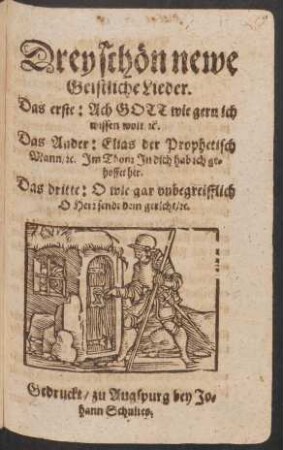 Drey schön newe
Geistliche Lieder.
Das erste: Ach GOTT wie gern ich
wissen wolt ꝛc.
Das Ander: Elias der Prophetisch
Mann, ꝛc. Im Thon: In dich hab ich ge-
hoffet hir.
Das dritte: O wie gar vnbegreifflich
O Herr sende dein gericht/ꝛc.
Gedruckt / zu Augspurg bey Jo-
hann Schultes.